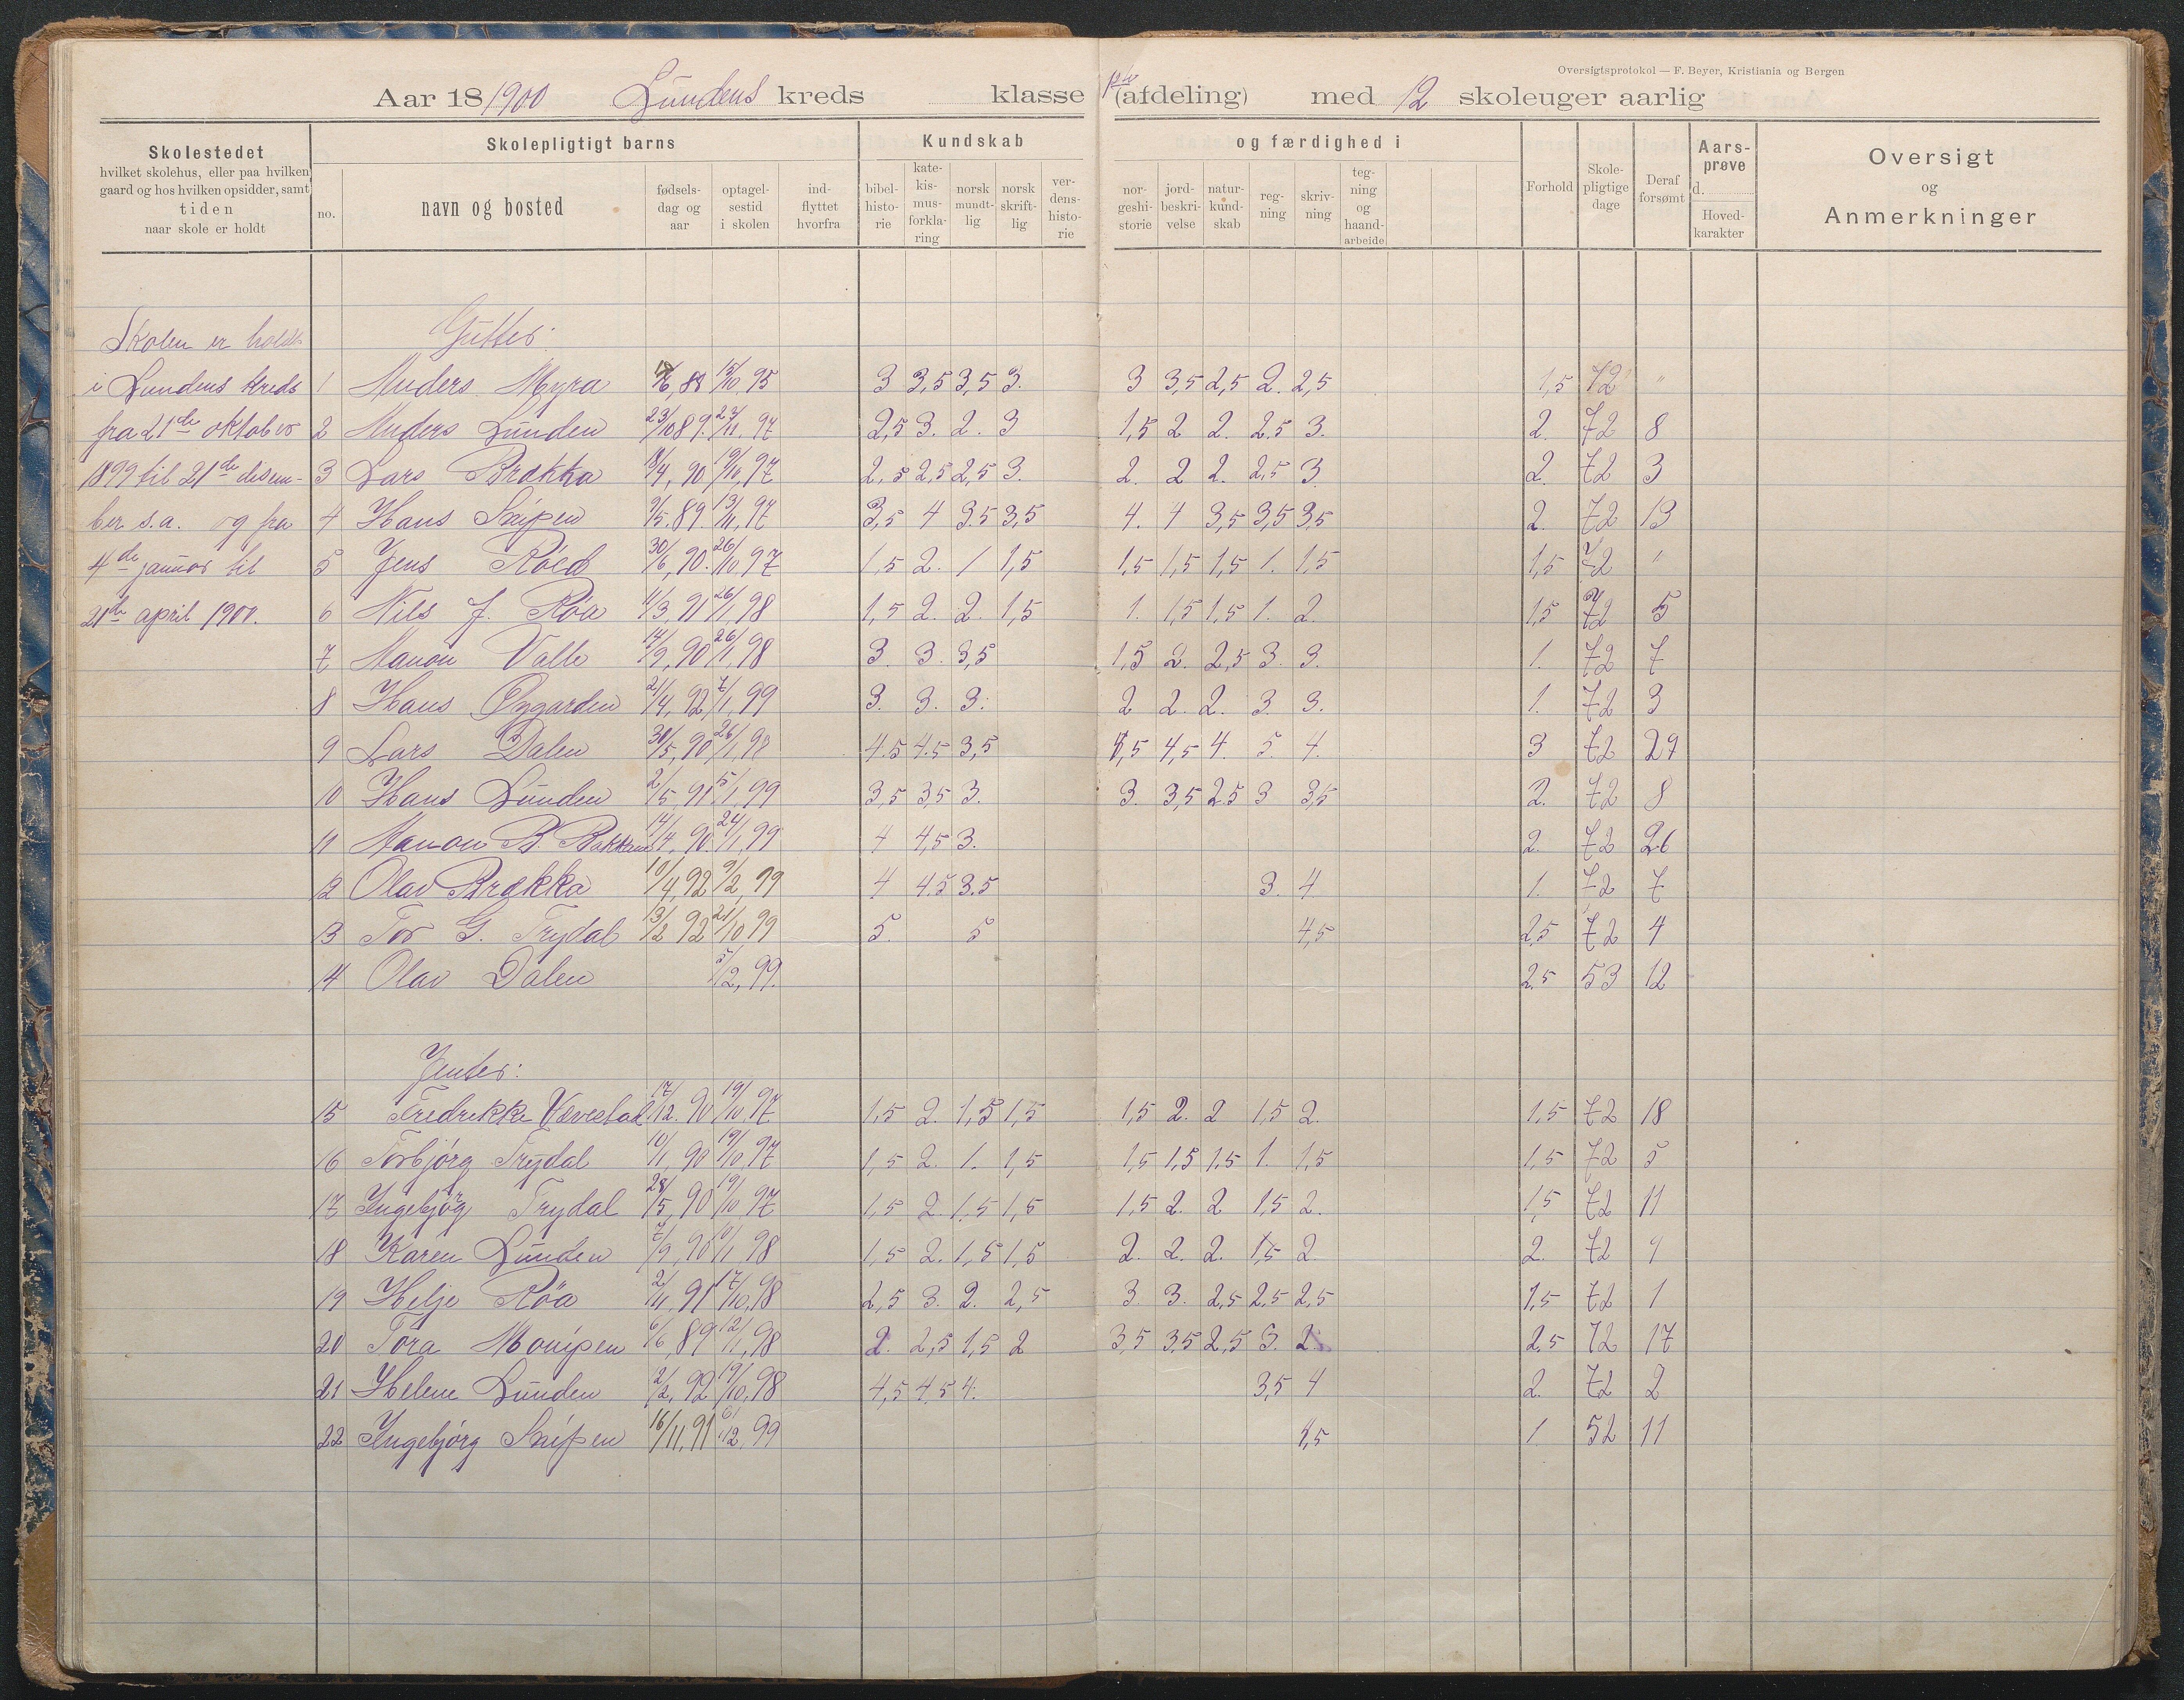 Oversigtsprotokol — F. Beyer, Kristiania og Bergen
Aar 18/1900 Lundens kreds klasse (afdeling) med 12 skoleuger aarlig
Skolestedet
hvilket skolehus, eller paa hvilken
gaard og hos hvilken opsidder, samt
tiden
naar skole er holdt
Skolepligtigt barns
no.
navn og bosted
fødsels-
dag og
aar
optagel-
sestid
i skolen
ind-
flyttet
hvorfra
Kundskab
bibel-
histo-
rie
kate-
kis-
mus-
forkla-
ring
norsk
mundt-
lig
norsk
skrift-
lig
ver-
dens-
histo-
rie
og færdighed i
nor-
geshi-
storie
jord-
beskri-
velse
natur-
kund-
skab
reg-
ning
skriv-
ning
teg-
ning
og
haand-
arbeide
Forhold
Skole-
pligtige
dage
Deraf
forsømt
Aars-
prøve
d.
Hoved-
karakter
Oversigt
og
Anmerkninger
Skolen er holdt
i Lundens kreds
fra 21de oktober
1899 til 21de desem-
ber s.a. og fra
4de januar til
21de april 1900.
Gutter:
1 Anders Myra 88 15/10 95 3 3,5 3,5 3. 3 3,5 2,5 2. 2,5 1,5 72 "
2 Anders Lunden 23/10 89. 23/11. 97 2,5 3. 2. 3 1,5 2 2. 2,5 3. 2. 72 8
3 Lars Brækka 18/4, 90 19/10, 97 2,5 2,5 2,5 3. 2. 2 2. 2,5 3 2. 72 3
4 Hans Snipen 9/5. 89. 13/11, 97 3,5 4 3.5 3,5 4. 4 3,5 3,5 3,5 2. 72 13
5 Jens Røed 30/6, 90. 26/10, 97 1,5 2. 1 1,5 1,5 1,5 1,5 1. 1,5 1,5 72 "
6 Nils J. Røa 11/3, 91 26/1, 98 1,5 2. 2. 1,5 1. 1,5 1,5 1. 2. 1,5 72 5
7 Aanon Valle 14/9, 90 26/1, 98 3. 3. 3,5 1,5 2. 2,5 3. 3. 1. 72 7
8 Hans Øygarden 21/4, 92 7/1, 99 3. 3. 3. 2 2. 2. 3. 3. 1. 72 3
9 Lars Dalen 30/5, 90 26/1, 98 4.5 4.5 3,5 4,5 4,5 4. 5. 4. 3 72 29
10 Hans Lunden 2/5, 91. 5/1, 99 3,5 3,5 3. 3. 3,5 2.5 3 3,5 2. 72 8
11 Aanon B. Bakken 14/4, 90. 24/1, 99 4 4,5 3. 2. 72 26
12 Olav Brækka 10/4, 92 9/2, 99 4 4.5 3.5 3. 4 1. 72 7
13 Tor G. Trydal 13/2 92 21/10 99 5. 5 4,5 2,5 72 4
14 Olav Dalen 5/12, 99. 2.5 53 12
Jenter:
15 Fredrikke Vævestad 17/12. 90 19/10, 97 1,5 2. 1,5 1,5 1,5 2. 2 1,5 2. 1,5 72 18
16 Torbjørg Trydal 10/1, 90 19/10, 97 1,5 2. 1. 1,5 1,5 1,5 1,5 1. 1,5 1,5 72 5
17 Ingebjørg Trydal 28/5, 90 19/10 97 1,5 2. 1.5 1,5 1,5 2. 2 1,5 2. 1,5 72 11
18 Karen Lunden 7/9, 90 10/1 98 1,5 2. 1,5 1,5 2. 2. 2. 1,5 2. 2. 72 9
19 Helje Røa 2/11, 91 17/10, 98 2,5 3. 2. 2,5 3. 3. 2,5 2,5 2,5 1,5 72 1
20 Tora Monipen 6/6, 89 12/1, 98 2. 2,5 1,5 2 3,5 3,5 2,5 3. 2. 2,5 72 17
21 Helene Lunden 2/2, 92 19/10, 98 4,5 4,5 4. 3,5 4 2. 72 2
22 Ingebjørg Snipen 16/11, 91 6/12, 99 4,5 1 52 11